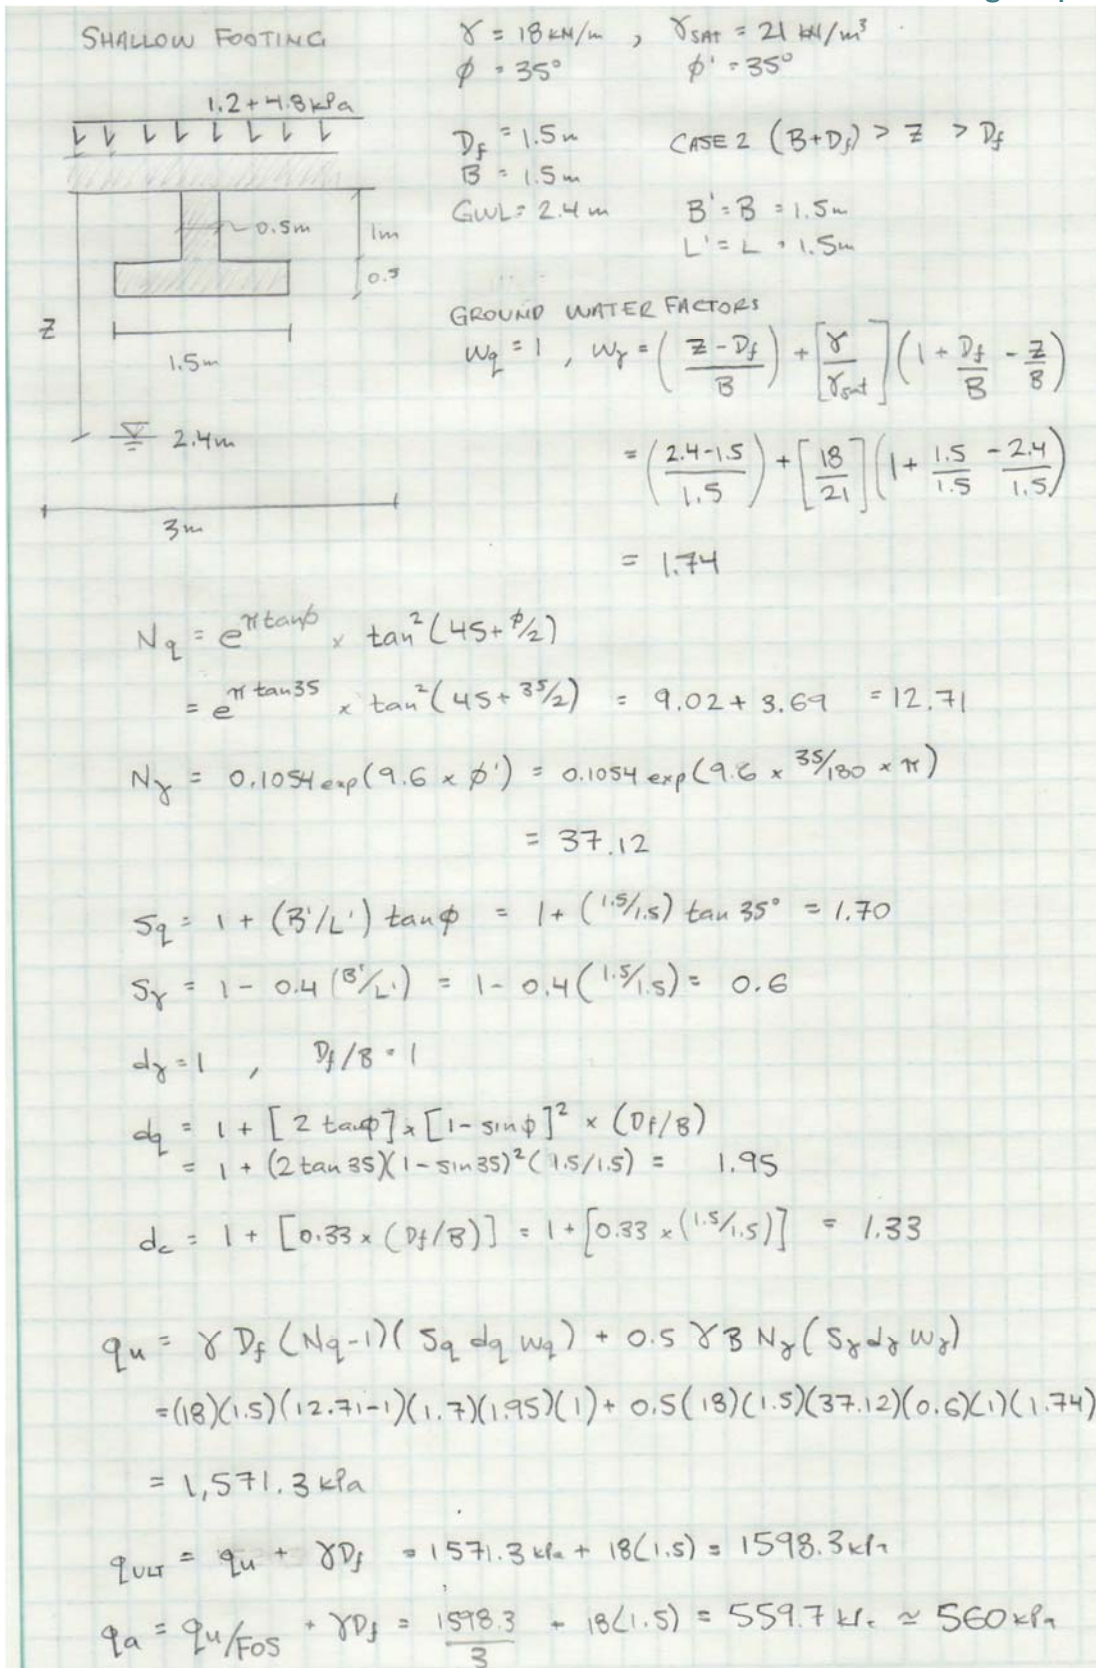 SHALLOW FOOTING
γ = 18 kN/m , γSAT = 21 kN/m³
φ = 35° φ' = 35°
1.2 + 4.8 kPa
Df = 1.5m CASE 2 (B+Df) > Z > Df
B = 1.5m
GWL = 2.4 m B' = B = 1.5m
L' = L = 1.5m
0.5m
1m
0.5
Z
1.5m
2.4m
3m
GROUND WATER FACTORS
wq = 1 , wγ = ((Z - Df)/B) + [γ/γsat](1 + Df/B - Z/B)
= ((2.4-1.5)/1.5) + [18/21](1 + 1.5/1.5 - 2.4/1.5)
= 1.74
Nq = e^(π tanφ) × tan²(45+φ/2)
= e^(π tan35) × tan²(45+35/2) = 9.02 + 3.69 = 12.71
Nγ = 0.1054 exp(9.6 × φ') = 0.1054 exp(9.6 × 35/180 × π)
= 37.12
Sq = 1 + (B'/L') tanφ = 1 + (1.5/1.5) tan 35° = 1.70
Sγ = 1 - 0.4 (B'/L') = 1 - 0.4 (1.5/1.5) = 0.6
dγ = 1 , Df/B = 1
dq = 1 + [2 tanφ] × [1 - sinφ]² × (Df/B)
= 1 + (2 tan 35)(1 - sin 35)²(1.5/1.5) = 1.95
dc = 1 + [0.33 × (Df/B)] = 1 + [0.33 × (1.5/1.5)] = 1.33
qu = γ Df (Nq-1)(Sq dq wq) + 0.5 γ B Nγ (Sγ dγ wγ)
= (18)(1.5)(12.71-1)(1.7)(1.95)(1) + 0.5(18)(1.5)(37.12)(0.6)(1)(1.74)
= 1,571.3 kPa
qULT = qu + γDf = 1571.3 kPa + 18(1.5) = 1598.3 kPa
qa = qu/FOS + γDf = 1598.3/3 + 18(1.5) = 559.7 kPa ≃ 560 kPa